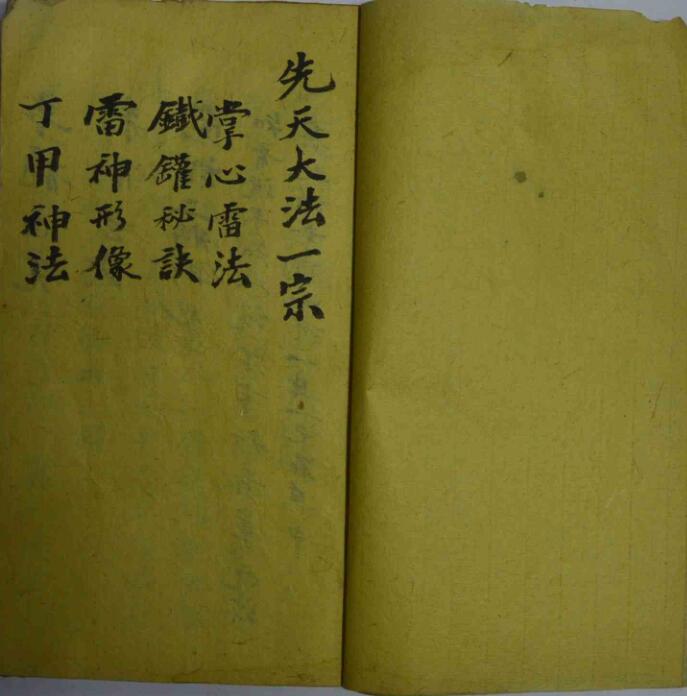 先天大法一宗
掌心雷法
鐵鑵秘訣
雷神形像
丁甲神法